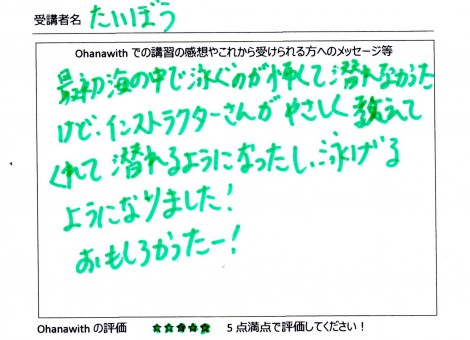 受講者名 たいぼう
Ohanawith での講習の感想やこれから受けられる方へのメッセージ等
最初海の中で泳ぐのが怖くて潜れなかった
けど、インストラクターさんがやさしく教えて
くれて潜れるようになったし、泳げる
ようになりました!
おもしろかったー!
Ohanawith の評価 ★★★★★ 5 点満点で評価してください!